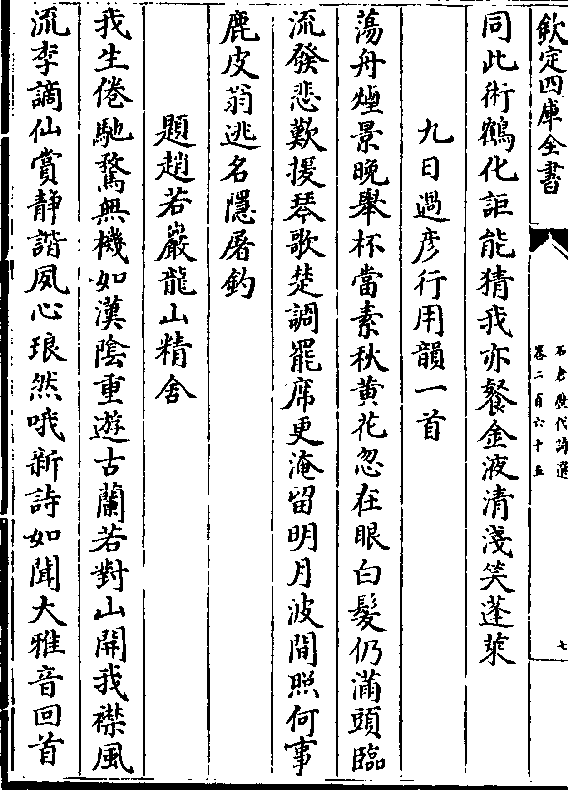 欽定四庫全書
石倉歷代詩選
卷二百六十五
七
同此術鶴化詎能猜我亦餐金液清淺笑蓬萊
九日過彦行用韻一首
蕩舟煙景晚舉杯當素秋黄花忽在眼白髮仍滿頭臨
流發悲歎援琴歌楚調罷席更淹留明月波間照何事
鹿皮翁逃名隱屠釣
題趙若巖龍山精舍
我生倦馳騖無機如漢陰重遊古蘭若對山開我襟風
流李謫仙賞静諧夙心琅然哦新詩如聞大雅音回首